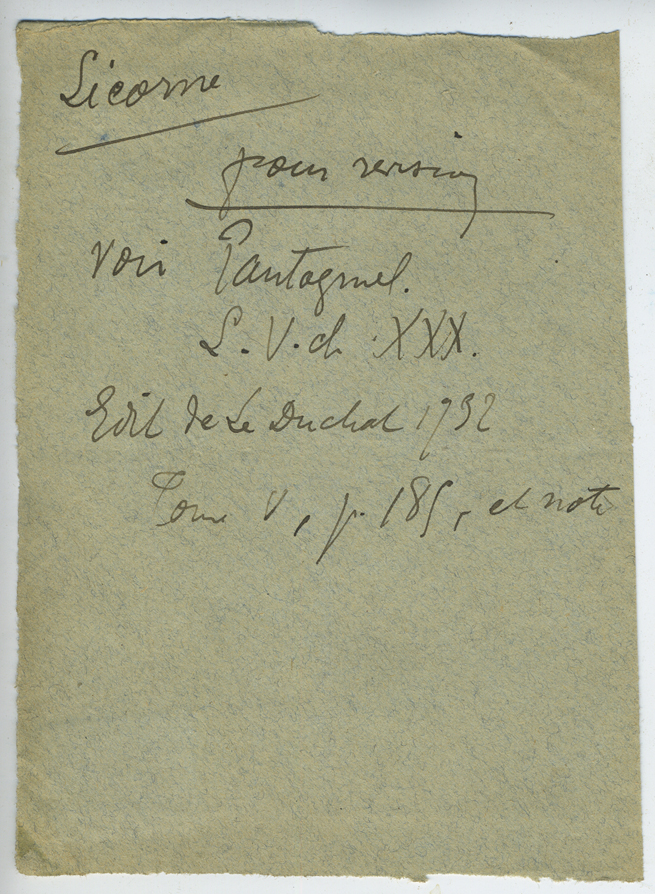 Licorne
pour version
voir Pantagruel.
L. V. ch. XXX.
Edit de Le Duchat 1732
Tome V, p. 185, et note